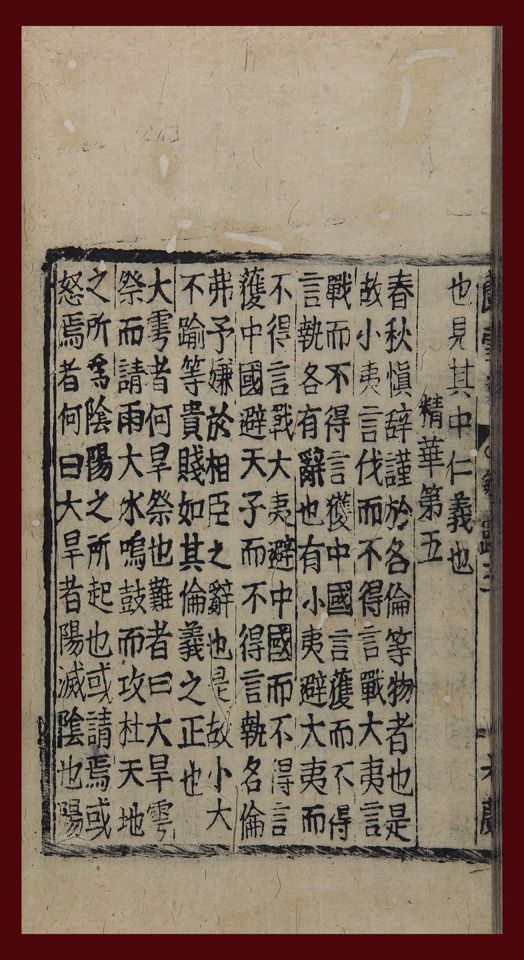 也見其中仁義也
精華第五
春秋慎辞謹於各倫等物者也是
故小夷言伐而不得言戰大夷言
戰而不得言獲中國言獲而不得
言執各有辭也有小夷避大夷而
不得言戰大夷避中國而不得言
獲中國避天子而不得言執名倫
弗予嫌於相臣之辭也是故小大
不踰等貴賤如其倫義之正也
大雩者何旱祭也難者曰大旱雩
祭而請雨大水嗚鼓而攻杜天地
之所為陰陽之所起也或請焉或
怒焉者何曰大旱者陽滅陰也陽